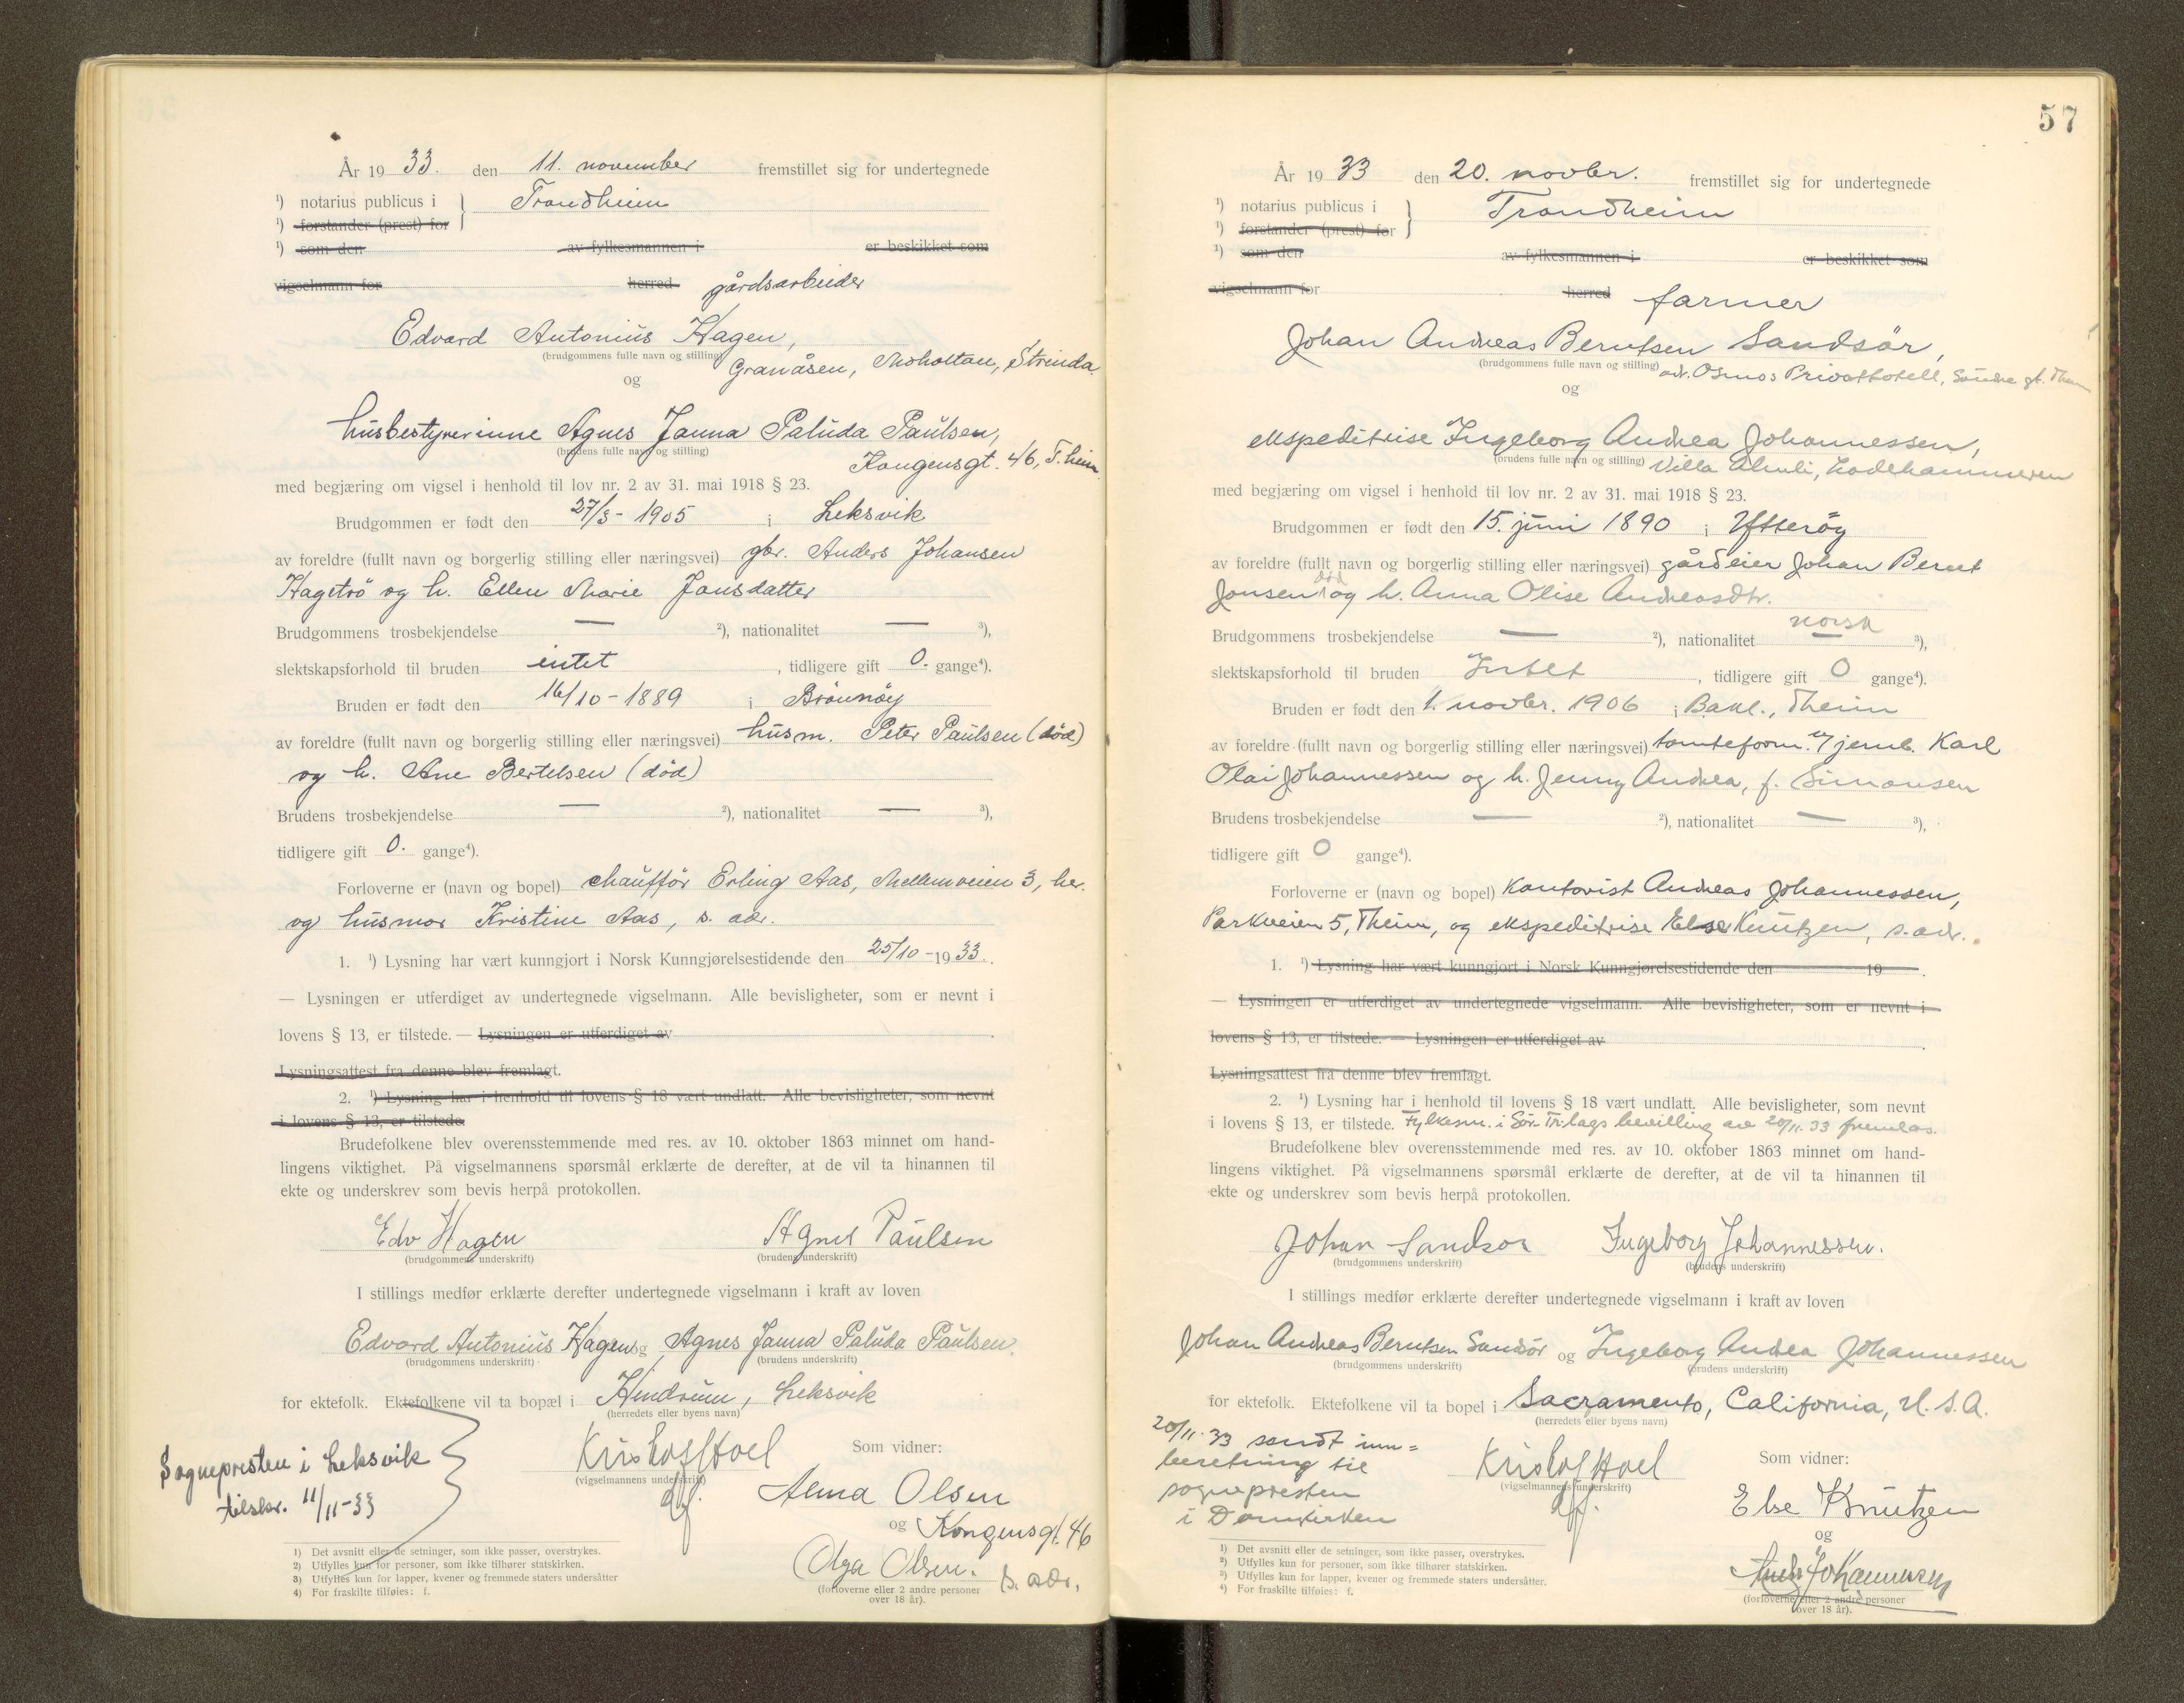 År 19 33. den 11. november fremstillet sig for undertegnede
1) notarius publicus i } Trondheim
1) forstander (prest) for
1) som den av fylkesmannen i er beskikket som
vigselmann for herred gårdsarbeider
Edvard Antonius Hagen,
(brudgommens fulle navn og stilling) Granåsen, Moholtan, Strinda.
og
husbestyrerinne Agnes Janna Paluda Paulsen,
(brudens fulle navn og stilling) Kongensgt. 46, T.heim
med begjæring om vigsel i henhold til lov nr. 2 av 31. mai 1918 § 23.
Brudgommen er født den 27/3 - 1905 i Leksvik
av foreldre (fullt navn og borgerlig stilling eller næringsvei) gbr. Anders Johansen
Hagetrø og h. Ellen Marie Jonsdatter
Brudgommens trosbekjendelse — 2), nationalitet — 3),
slektskapsforhold til bruden intet, tidligere gift 0. gange4).
Bruden er født den 16/10 - 1889 i Brønnøy
av foreldre (fullt navn og borgerlig stilling eller næringsvei) husm. Peter Paulsen (død)
og h. Ane Bertelsen (død)
Brudens trosbekjendelse — 2), nationalitet — 3),
tidligere gift 0. gange4).
Forloverne er (navn og bopel) chauffør Erling Aas, Mellemveien 3, her.
og husmor Kristine Aas, s. adr.
1. 1) Lysning har vært kunngjort i Norsk Kunngjørelsestidende den 25/10 - 19 33.
— Lysningen er utferdiget av undertegnede vigselmann. Alle bevisligheter, som er nevnt i
lovens § 13, er tilstede. — Lysningen er utferdiget av
Lysningsattest fra denne blev fremlagt.
2. 1) Lysning har i henhold til lovens § 18 vært undlatt. Alle bevisligheter, som nevnt
i lovens § 13, er tilstede.
Brudefolkene blev overensstemmende med res. av 10. oktober 1863 minnet om hand-
lingens viktighet. På vigselmannens spørsmål erklærte de derefter, at de vil ta hinannen til
ekte og underskrev som bevis herpå protokollen.
Edv Hagen Agnes Paulsen
(brudgommens underskrift) (brudens underskrift)
I stillings medfør erklærte derefter undertegnede vigselmann i kraft av loven
Edvard Antonius Hagen og Agnes Janna Paluda Paulsen.
(brudgommens underskrift) (brudens underskrift)
for ektefolk. Ektefolkene vil ta bopæl i Hindrum, Leksvik
(herredets eller byens navn)
Sognepresten i Leksvik
tilskr. 11/11-33
Kristof Hoel Som vidner:
(vigselmannens underskrift)
Anna Olsen
og Kongensgt. 46
Olga Olsen. s. adr.
(forloverne eller 2 andre personer
over 18 år).
1) Det avsnitt eller de setninger, som ikke passer, overstrykes.
2) Utfylles kun for personer, som ikke tilhører statskirken.
3) Utfylles kun for lapper, kvener og fremmede staters undersåtter
4) For fraskilte tilføies: f.
57
År 19 33 den 20. novbr. fremstillet sig for undertegnede
1) notarius publicus i } Trondheim
1) forstander (prest) for
1) som den av fylkesmannen i er beskikket som
vigselmann for herred farmer
Johan Andreas Berntsen Sandsør,
(brudgommens fulle navn og stilling) adr. Osmos Privathotell, Søndre gt. Them
og
ekspeditrise Ingeborg Andrea Johannessen,
(brudens fulle navn og stilling) Villa Almli, Ladehammeren
med begjæring om vigsel i henhold til lov nr. 2 av 31. mai 1918 § 23.
Brudgommen er født den 15. juni 1890 i Ytterøy
av foreldre (fullt navn og borgerlig stilling eller næringsvei) gårdeier Johan Bernt
Jonsen død og h. Anna Olise Andreasdtr.
Brudgommens trosbekjendelse — 2), nationalitet norsk — 3),
slektskapsforhold til bruden Intet, tidligere gift 0 gange4).
Bruden er født den 1. novbr. 1906 i Bakl., Theim
av foreldre (fullt navn og borgerlig stilling eller næringsvei) tomteform. v/ jernb. Karl
Olai Johannessen og h. Jenny Andrea, f. Simonsen
Brudens trosbekjendelse — 2), nationalitet — 3),
tidligere gift 0 gange4).
Forloverne er (navn og bopel) Kontorist Andreas Johannessen,
Parkveien 5, Theim, og ekspeditrise Else Knutzen, s. adr.
1. 1) Lysning har vært kunngjort i Norsk Kunngjørelsestidende den 19 .
— Lysningen er utferdiget av undertegnede vigselmann. Alle bevisligheter, som er nevnt i
lovens § 13, er tilstede. — Lysningen er utferdiget av
Lysningsattest fra denne blev fremlagt.
2. 1) Lysning har i henhold til lovens § 18 vært undlatt. Alle bevisligheter, som nevnt
i lovens § 13, er tilstede. Fylkesm. i Sør-Tr.lags bevilling av 20/11.33 fremlas.
Brudefolkene blev overensstemmende med res. av 10. oktober 1863 minnet om hand-
lingens viktighet. På vigselmannens spørsmål erklærte de derefter, at de vil ta hinannen til
ekte og underskrev som bevis herpå protokollen.
Johan Sandsor Ingeborg Johannessen.
(brudgommens underskrift) (brudens underskrift)
I stillings medfør erklærte derefter undertegnede vigselmann i kraft av loven
Johan Andreas Berntsen Sandsør og Ingeborg Andrea Johannessen
(brudgommens underskrift) (brudens underskrift)
for ektefolk. Ektefolkene vil ta bopel i Sacramento, California, U.S.A.
(herredets eller byens navn)
20/11-33 sendt inn=
beretning til
sognepresten
i Domkirken
Kristof Hoel Som vidner:
(vigselmannens underskrift)
Else Knutzen
og
Andr Johannessen
(forloverne eller 2 andre personer
over 18 år).
1) Det avsnitt eller de setninger, som ikke passer, overstrykes.
2) Utfylles kun for personer, som ikke tilhører statskirken.
3) Utfylles kun for lapper, kvener og fremmede staters undersåtter.
4) For fraskilte tilføies: f.